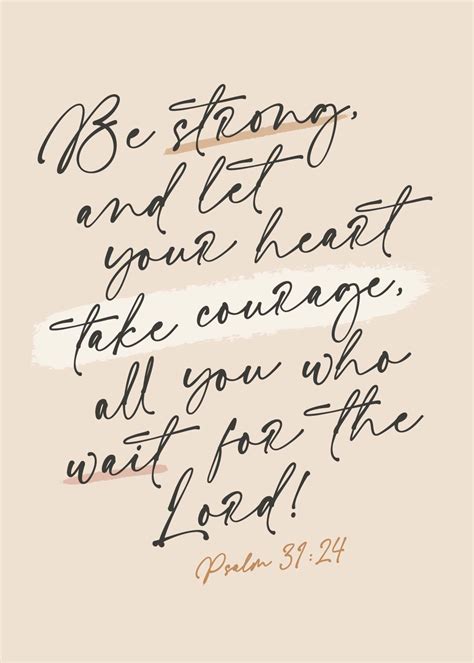 Be strong,
and let
your heart
take courage,
all you who
wait for the
Lord!
Psalm 31:24